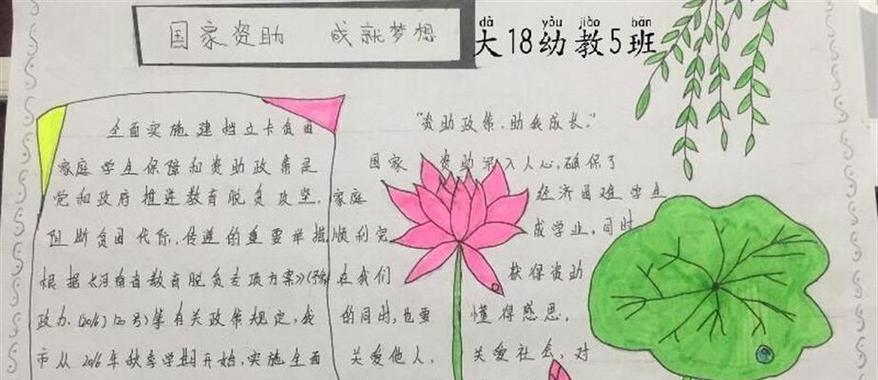 国家资助 成就梦想
dà yòu jiào bān
大18幼教5班
全面实施建档立卡贫困
家庭学生保障和资助政策是
党和政府推进教育脱贫攻坚,
阻断贫困代际,传递的重要举措
根据《河南省教育脱贫专项方案》(豫
政办.(2016)120号)等有关政策规定,我
市从2016年秋季学期开始,实施全面
"资助政策,助我成长."
国家 资助深入人心,确保了
家庭 经济困难学生
顺利完 成学业,同时
在我们 获得资助
的同时,也要 懂得感恩,
关爱他人, 关爱社会,对